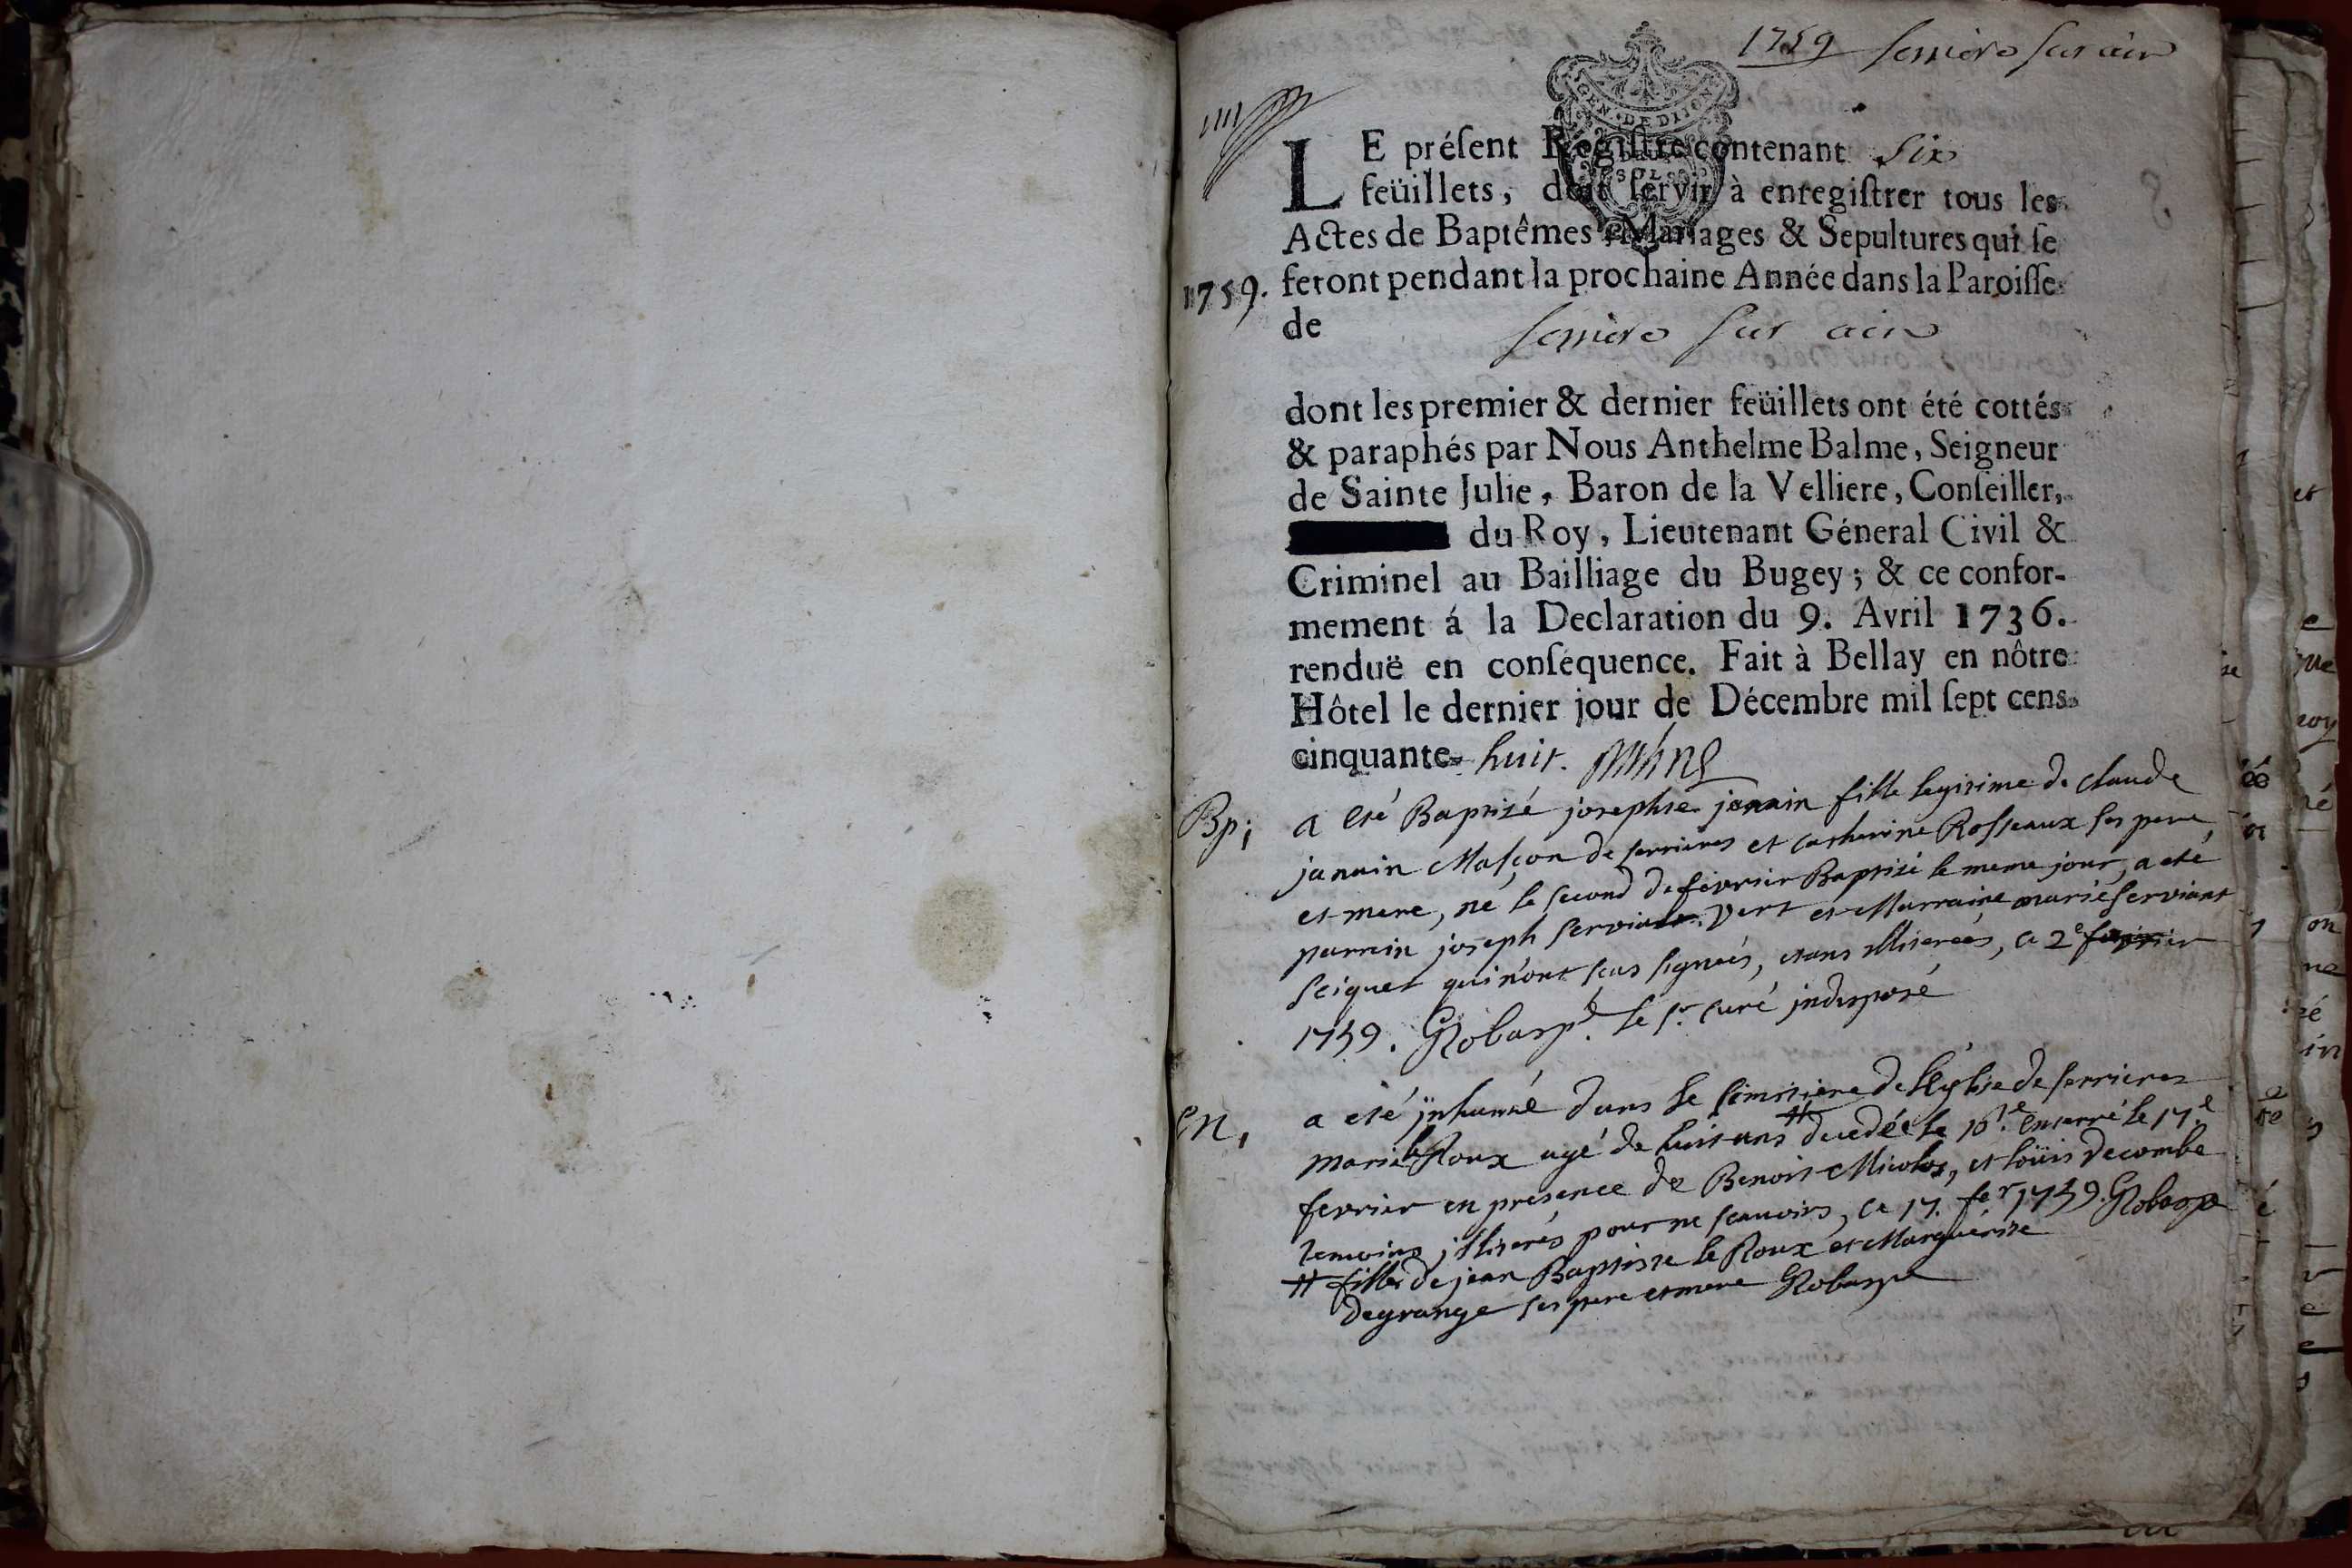 1759 serriere sur ain
GEN. DE DIJON
SOLS
LE préſent Régiſtre contenant six
feüillets, doit ſervir à enregiſtrer tous les
Actes de Baptêmes, Mariages & Sepultures qui ſe
1759. feront pendant la prochaine Année dans la Paroiſſe
de serriere sur ain
dont les premier & dernier feüillets ont été cottés
& paraphés par Nous Anthelme Balme, Seigneur
de Sainte Julie, Baron de la Velliere, Conſeiller,
du Roy, Lieutenant Géneral Civil &
Criminel au Bailliage du Bugey; & ce confor-
mement á la Declaration du 9. Avril 1736.
renduë en conſéquence. Fait à Bellay en nôtre
Hôtel le dernier jour de Décembre mil ſept cens
cinquante- huit.
Bp; a eté Baptizé josephte janin fille legitime de claude
janin Masçon de serrieres et catherine Rosseaux ses pere,
et mere, né le second de fevrier Baptisé le meme jour, a eté
parrain joseph Vert et Marraine marie serviant
seiquet qui n'ont pas signés, etans illiterées, ce 2e fevrier
1759. Grobasp. le sr. curé indisposé
En, a eté inhumé dans le simitiere de l'Eglise de serrieres
marie le Roux agé de huit ans # decedée le 16.e enterré le 17.e
fevrier en presence de Benoit Nicolas, et loüis decombe
temoins illiterés pour ne scauoirs, ce 17. fer 1759. Grobasp
# fille de jean Baptiste le Roux et Marguerite
degrange ses pere et mere Grobasp